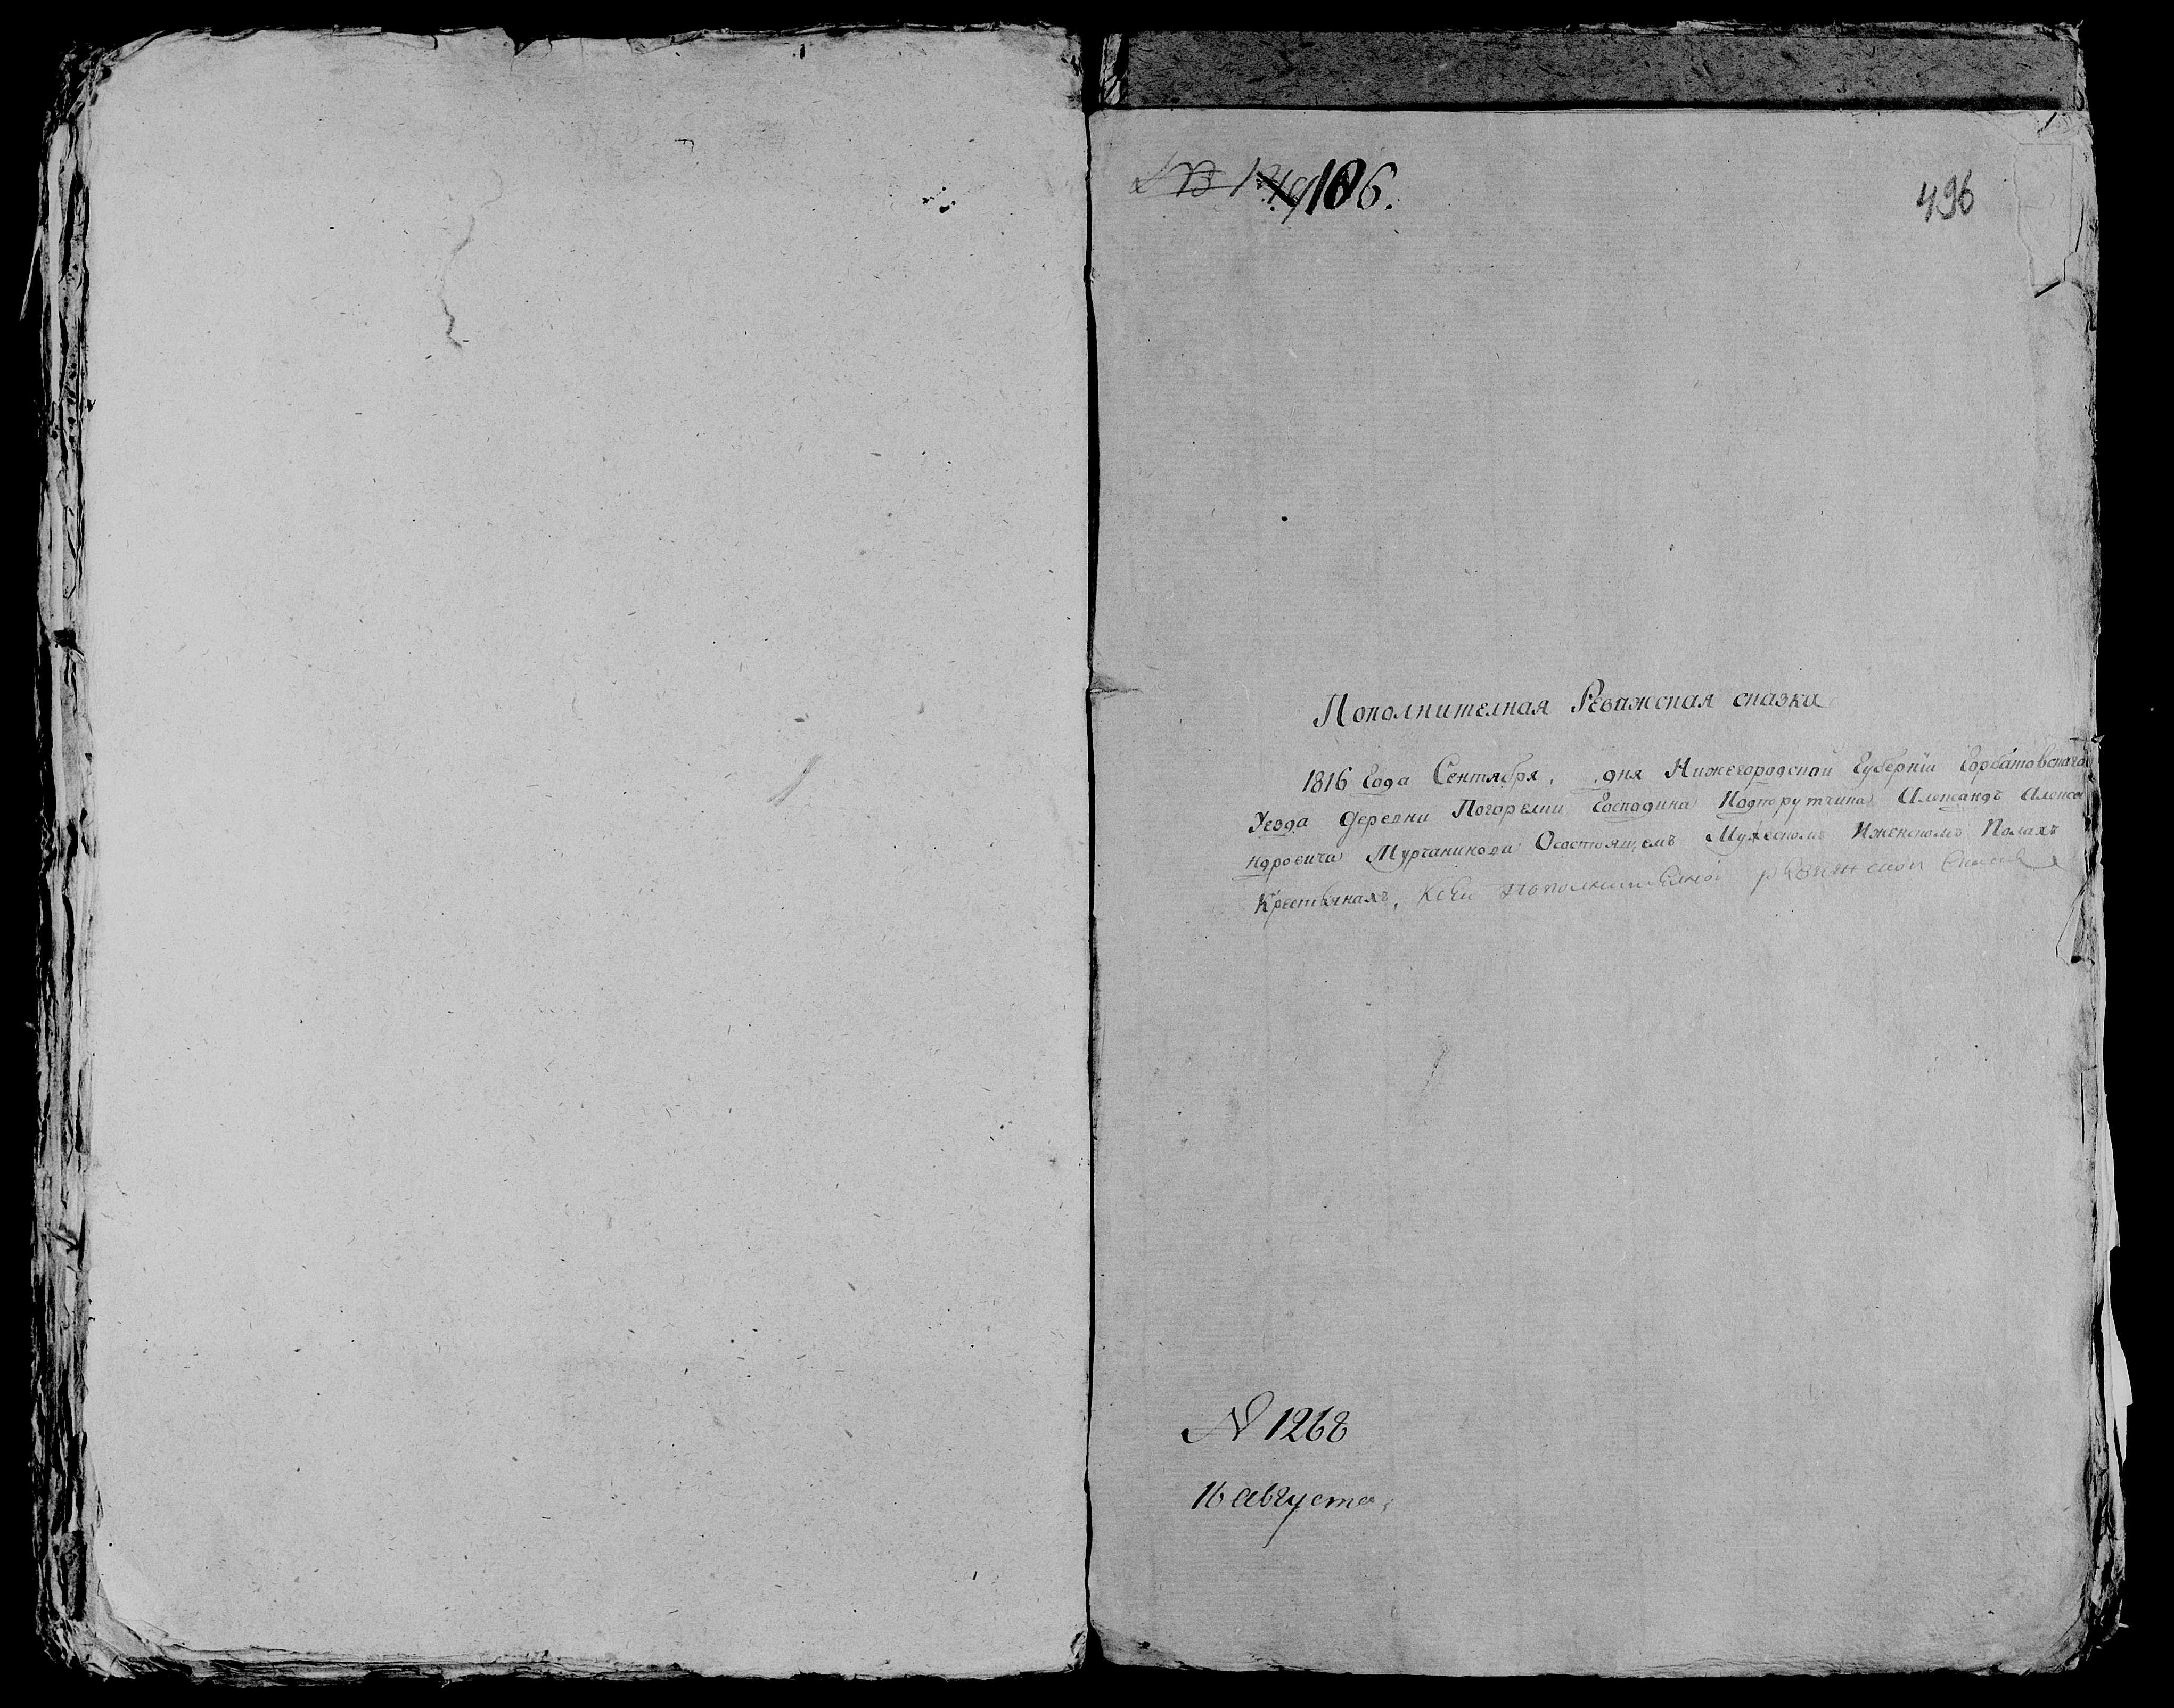 106.
496
Пополнителная Ревижская сказка
1816 Года Сентября, дня Нижегородской Губернїи Горбатовского
Уезда Деревни Погорелки Господина Подпорутчика Александъ Алекса
ндровича Мурчанинова Осостоящемъ Мужескомъ Иженскомъ Полахъ
Крестьянахъ, Ксей пополнителной ревижской Сказке
N 1268
16 августа,